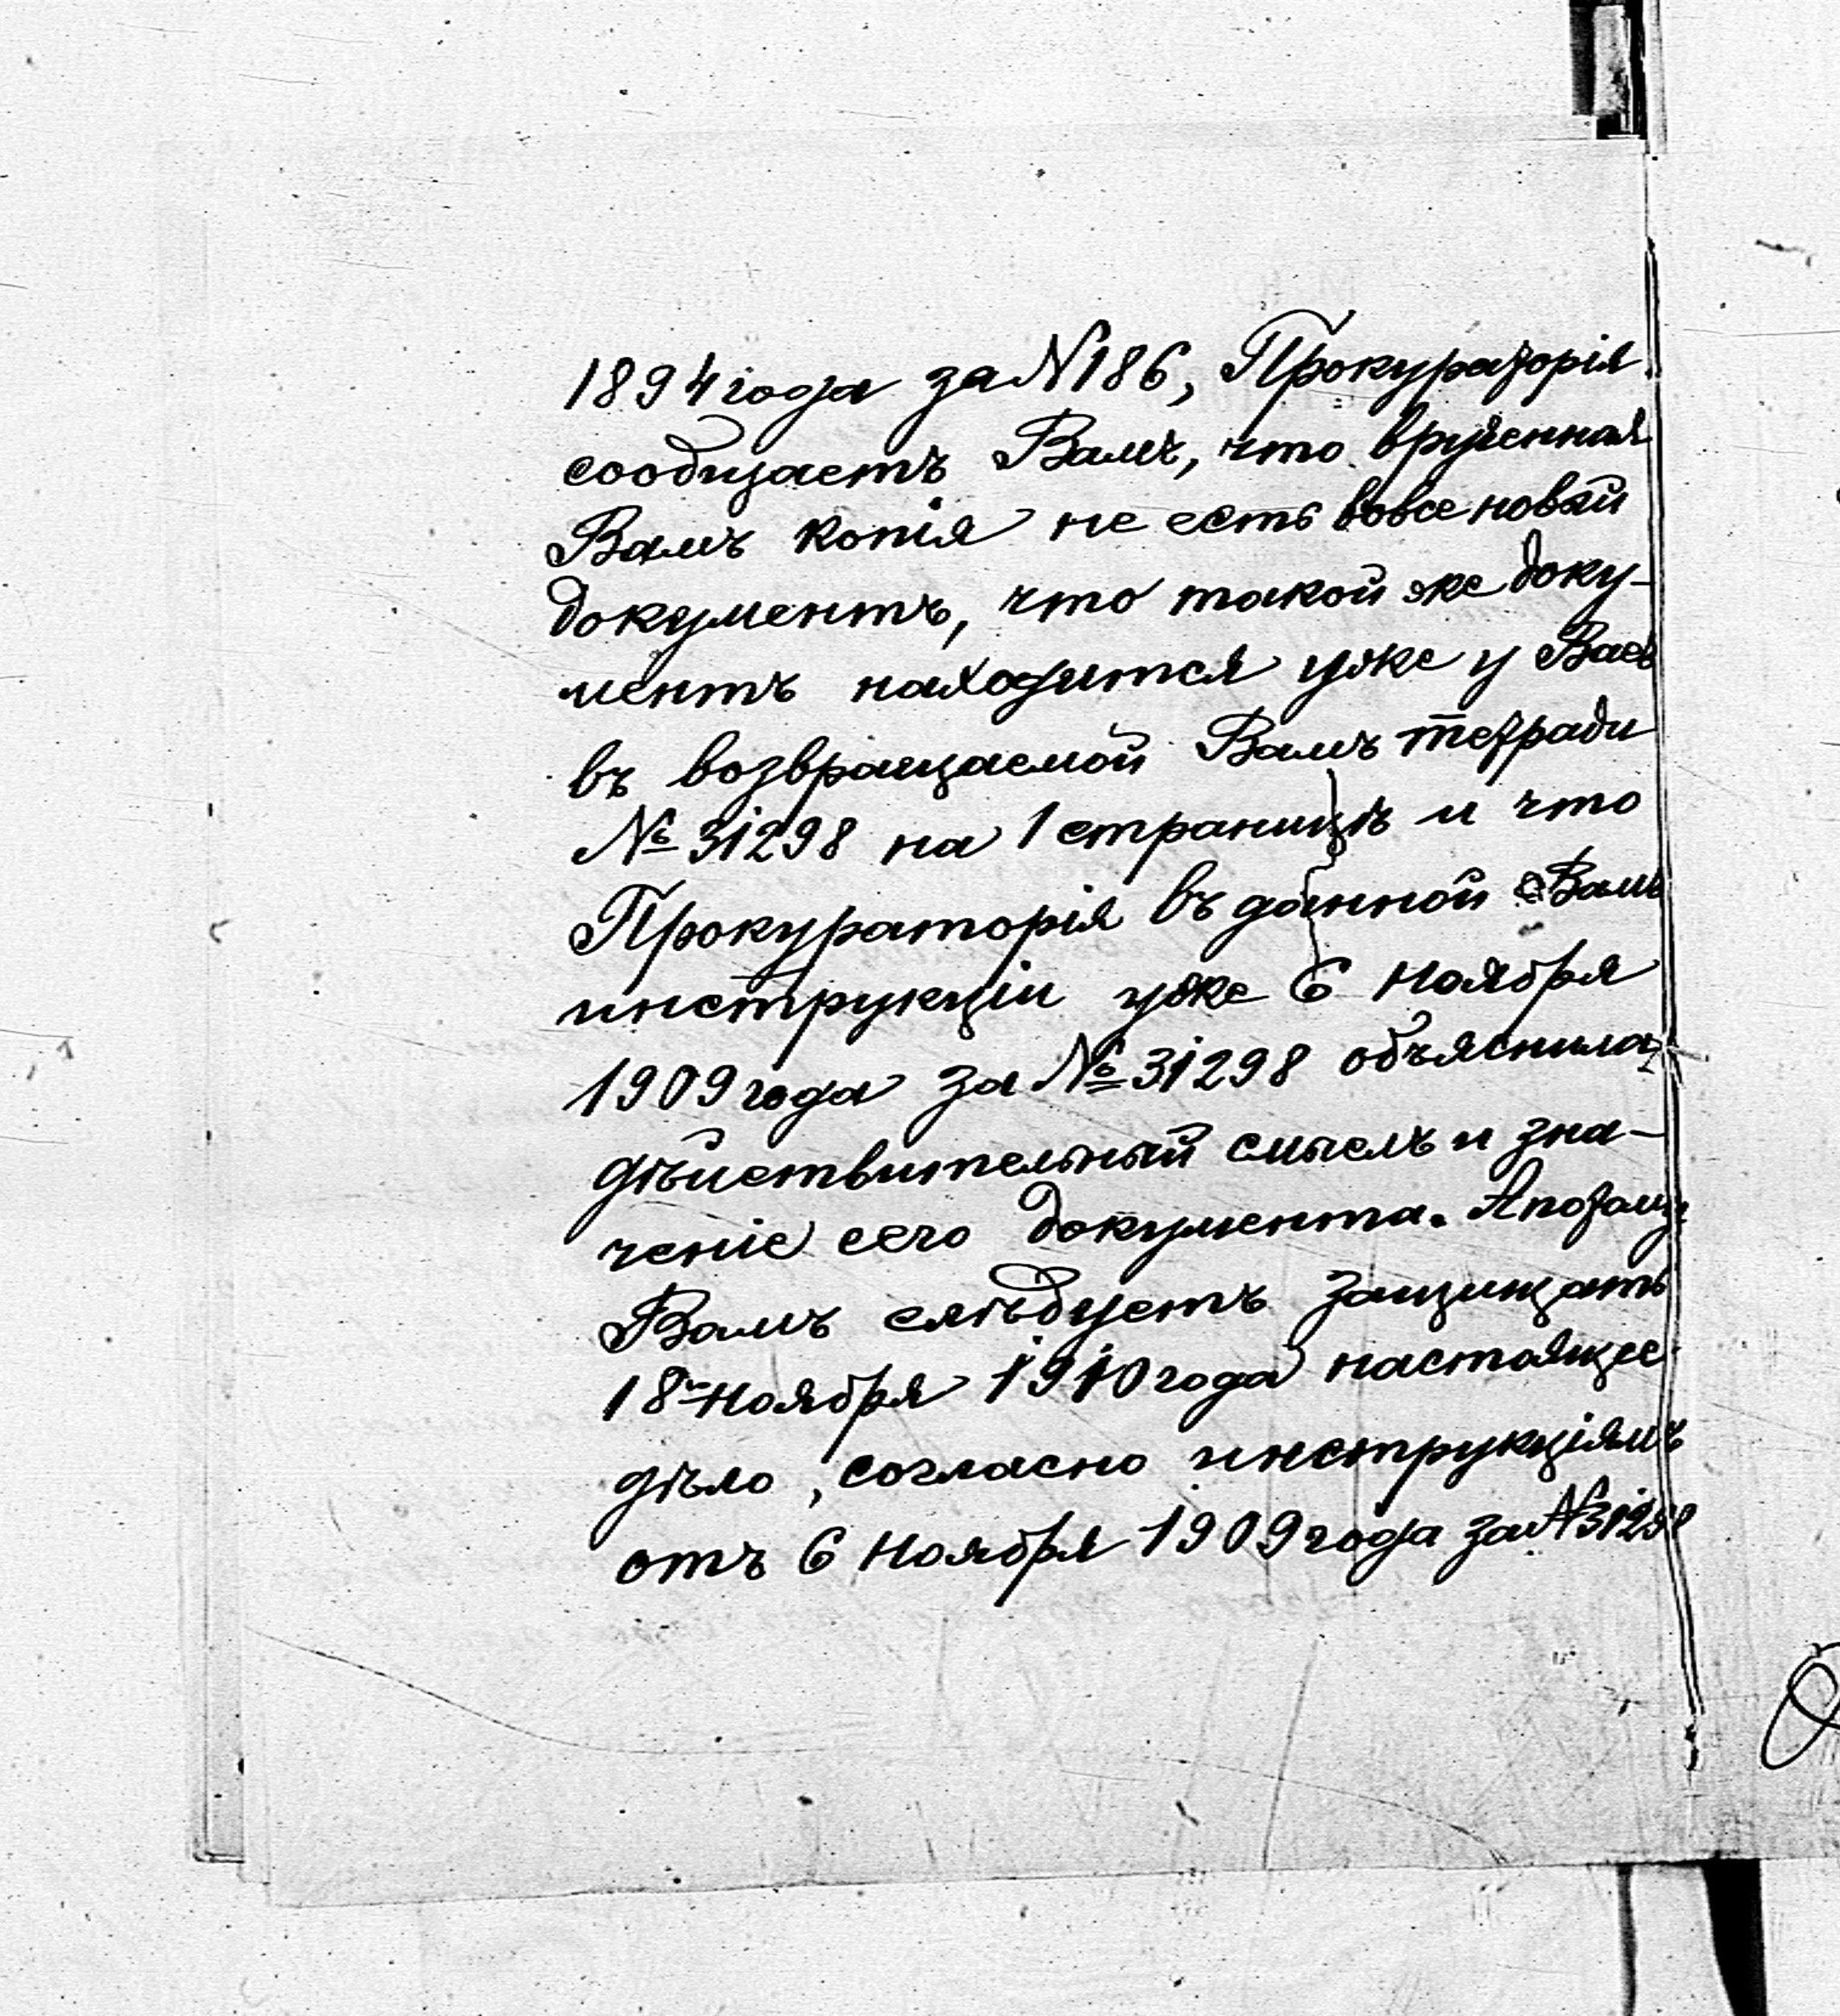 1894 года за N186, Прокураторія
сообщаетъ Вамъ, что врученная
Вамъ копія не есть вовсе новый
документъ, что такой же доку-
ментъ находится уже у Васъ
въ возвращаемой Вамъ тетради
№ 31298 на 1 страницѣ и что
Прокураторія въ данной Вамъ
инструкціи уже 6 Ноября
1909 года за № 31298 объяснила
дѣйствительный смыслъ и зна-
ченіе сего документа. А потому
Вамъ слѣдуетъ защищать
18го Ноября 1910 года настоящее
дѣло, согласно инструкціямъ
отъ 6 Ноября 1909 года за N31298